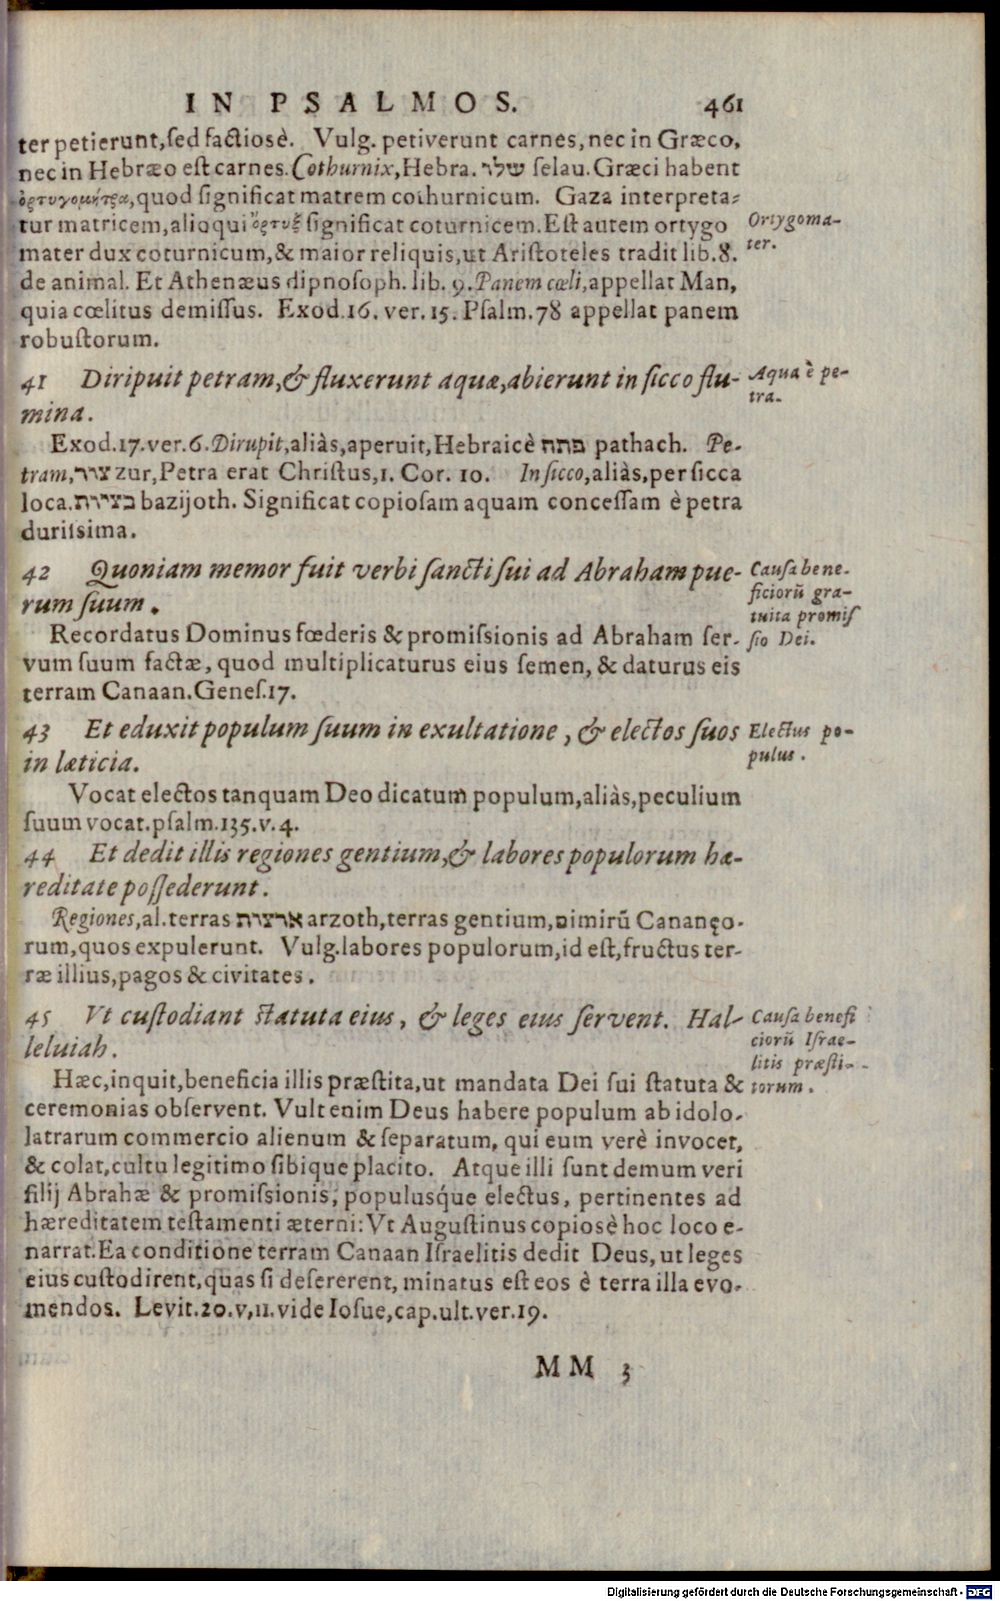 IN PSALMOS. 461
ter petierunt, sed factiosè. Vulg. petiverunt carnes, nec in Græco,
nec in Hebræo est carnes. Cothurnix, Hebra. שלו selau. Græci habent
ὀρτυγομήτρα, quod significat matrem cothurnicum. Gaza interpreta-
tur matricem, alioqui ὄρτυξ significat coturnicem. Est autem ortygo
mater dux coturnicum, & maior reliquis, ut Aristoteles tradit lib. 8.
Ortygoma-
ter.
de animal. Et Athenæus dipnosoph. lib. 9. Panem cœli, appellat Man,
quia cœlitus demissus. Exod. 16. ver. 15. Psalm. 78 appellat panem
robustorum.
41 Diripuit petram, & fluxerunt aquæ, abierunt in sicco flu-
mina.
Aqua è pe-
tra.
Exod. 17. ver. 6. Dirupit, aliàs, aperuit, Hebraicè פתח pathach. Pe-
tram, צור zur, Petra erat Christus, 1. Cor. 10. In sicco, aliàs, per sicca
loca. בציות bazijoth. Significat copiosam aquam concessam è petra
durissima.
42 Quoniam memor fuit verbi sancti sui ad Abraham pue-
rum suum.
Causa bene-
ficiorũ gra-
tuita promis
sio Dei.
Recordatus Dominus fœderis & promissionis ad Abraham ser-
vum suum factæ, quod multiplicaturus eius semen, & daturus eis
terram Canaan. Genes. 17.
43 Et eduxit populum suum in exultatione, & electos suos
in læticia.
Electus po-
pulus.
Vocat electos tanquam Deo dicatum populum, aliàs, peculium
suum vocat. psalm. 135. v. 4.
44 Et dedit illis regiones gentium, & labores populorum hæ-
reditate possederunt.
Regiones, al. terras ארצות arzoth, terras gentium, nimirũ Cananęo-
rum, quos expulerunt. Vulg. labores populorum, id est, fructus ter-
ræ illius, pagos & civitates.
45 Vt custodiant statuta eius, & leges eius servent. Hal-
leluiah.
Causa benefi
ciorũ Israe-
litis præsti-
torum.
Hæc, inquit, beneficia illis præstita, ut mandata Dei sui statuta &
ceremonias observent. Vult enim Deus habere populum ab idolo-
latrarum commercio alienum & separatum, qui eum verè invocet,
& colat, cultu legitimo sibique placito. Atque illi sunt demum veri
filij Abrahæ & promissionis, populusq́ue electus, pertinentes ad
hæreditatem testamenti æterni: Vt Augustinus copiosè hoc loco e-
narrat. Ea conditione terram Canaan Israelitis dedit Deus, ut leges
eius custodirent, quas si desererent, minatus est eos è terra illa evo-
mendos. Levit. 20. v, 11. vide Iosue, cap. ult. ver. 19.
MM 3
Digitalisierung gefördert durch die Deutsche Forschungsgemeinschaft - DFG